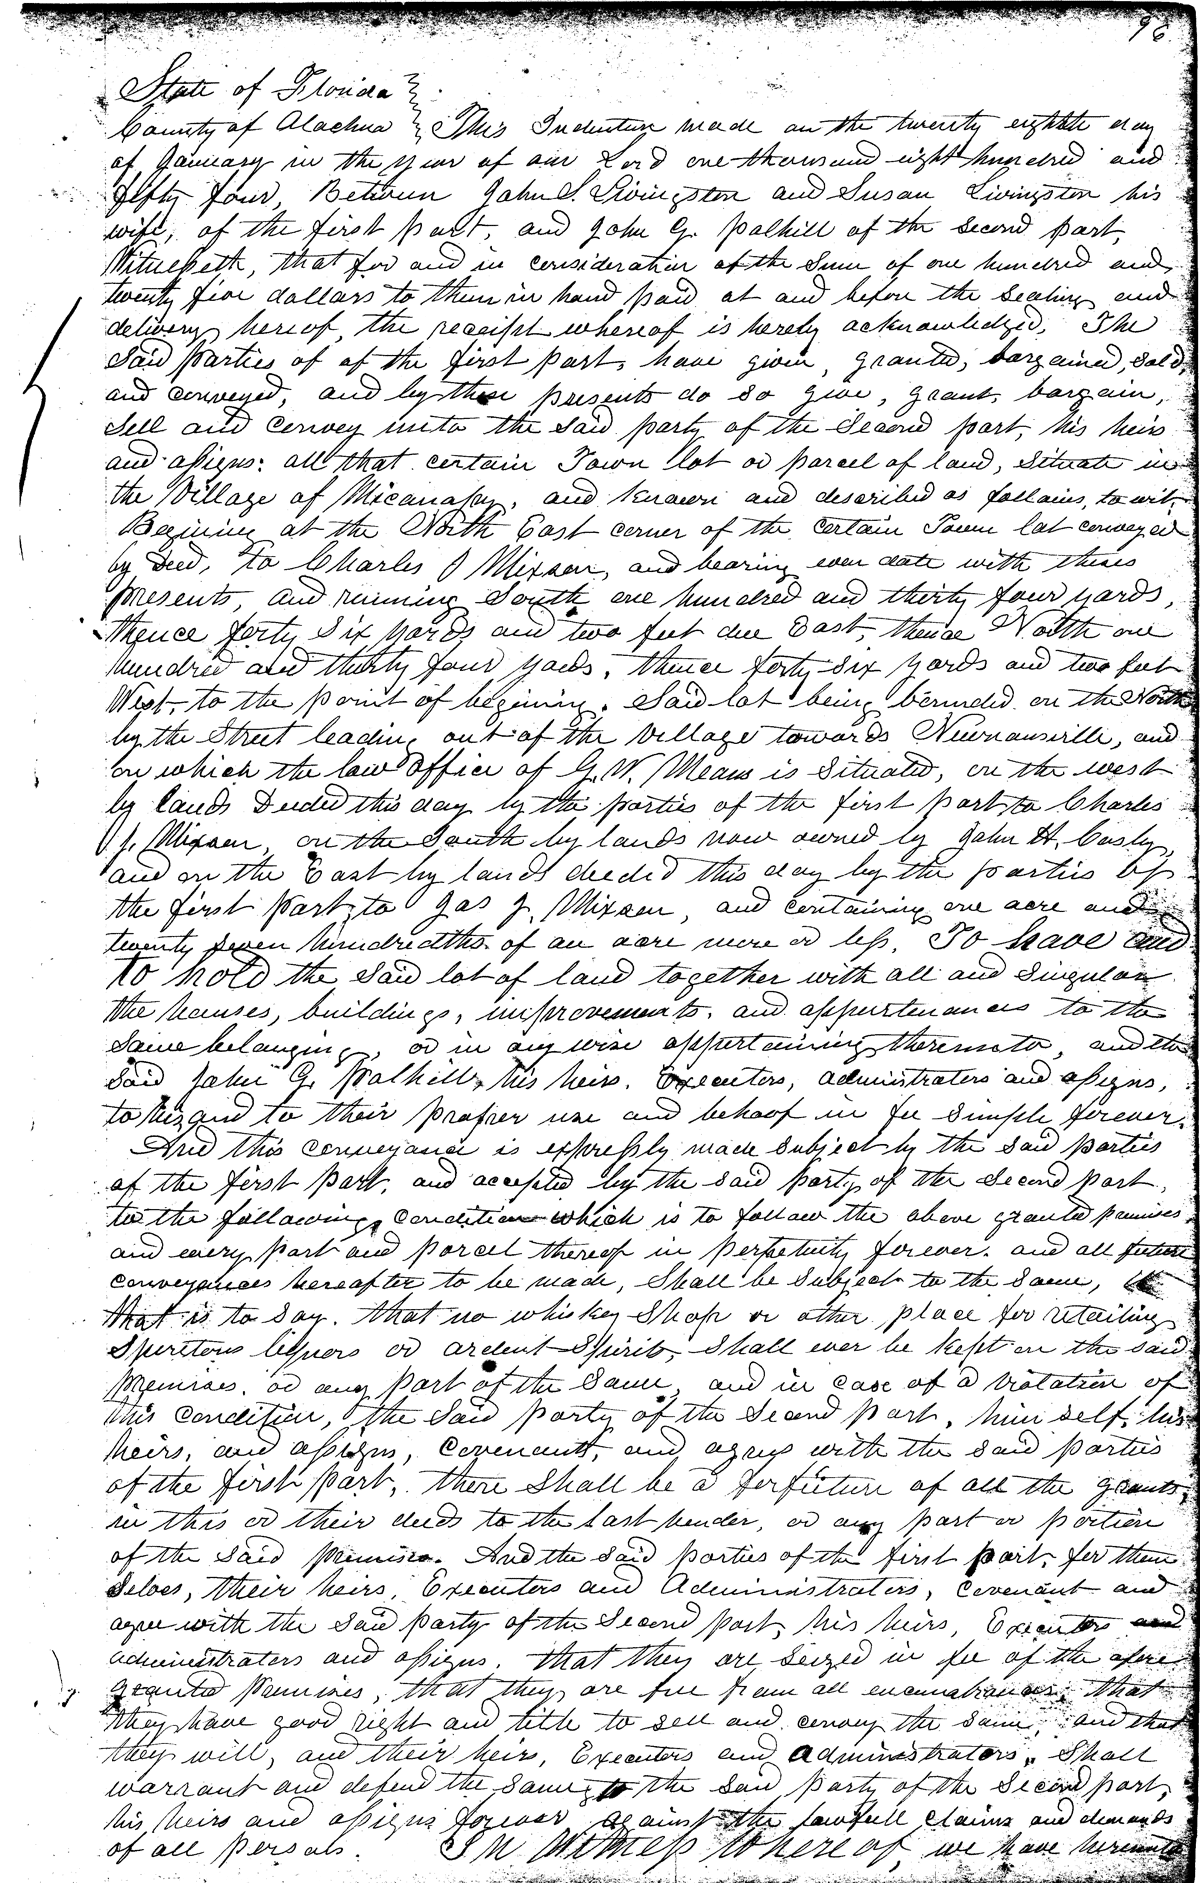 98
State of Florida }
County of Alachua } This Indenture made on the twenty eighth day
of January in the year of our Lord one thousand eight hundred and
fifty four, Between John S. Livingston and Susan Livingston his
wife, of the first part, and John G. Polhill of the second part,
Witnesseth, that for and in consideration of the Sum of one hundred and
twenty five dollars to them in hand paid at and before the Sealing and
delivery hereof, the receipt whereof is hereby acknowledged, The
Said parties of of the first part, have given, granted, bargained, Sold,
and conveyed, and by these presents do so give, grant, bargain,
Sell and Convey unto the Said party of the Second part, his heirs
and assigns: all that certain Town lot or parcel of land, Situate in
the Village of Micanopy, and known and described as follows, to wit,
Begining at the North East corner of the certain Town lot conveyed
by Deed, to Charles J Mixson, and bearing even date with these
presents, and running South one hundred and thirty four yards,
thence forty Six yards and two feet due East, thence North one
hundred and thirty four yards, thence forty six yards and two feet
West, to the point of begining. Said lot being bounded on the North
by the Street leading out of the Village towards Newnansville, and
on which the law Office of G. W. Means is Situated, on the west
by lands Deeded this day by the parties of the first part to Charles
J. Mixson, on the South by lands now owned by John H. Cosby,
and on the East by lands deeded this day by the parties of
the first part, to Jas J. Mixson, and containing one acre and
twenty seven hundredths of an acre more or less. To have and
to hold the Said lot of land together with all and Singular
the houses, buildings, improvements, and appurtenances to the
Same belonging, or in any wise appertaining thereunto, and the
Said John G. Polhill, his heirs, Executors, administrators and assigns,
to his and to their proper use and behoof in fee Simple forever.
And this conveyance is expressly made Subject by the Said parties
of the first part, and accepted by the Said party of the Second part,
to the following condition which is to follow the above granted premises
and every part and parcel thereof in perpetuity forever. and all future
conveyances hereafter to be made, Shall be Subject to the Same,
that is to Say. that no whiskey Shop or other place for retailing
Spiritous liquors or ardent Spirits, Shall ever be kept on the said
premises, or any part of the Same, and in case of a violation of
this condition, the Said party of the Second part, him self, his
heirs, and assigns, covenants, and agrees with the Said parties
of the first part, there Shall be a forfeiture of all the grants,
in this or their deeds to the last vender, or any part or portion
of the Said premises. And the Said parties of the first part, for them
Selves, their heirs, Executors and Administrators, covenant and
agree with the Said party of the Second part, his heirs, Executors and
administrators and assigns, that they are Seized in fee of the afore
granted premises, that they are free from all encumbrances, that
they have good right and title to sell and convey the Same, and that
they will, and their heirs, Executors and administrators, Shall
warrant and defend the Same to the Said party of the Second part,
his heirs and assigns forever against the lawfull claims and demands
of all persons. In Witness Whereof, we have hereunto